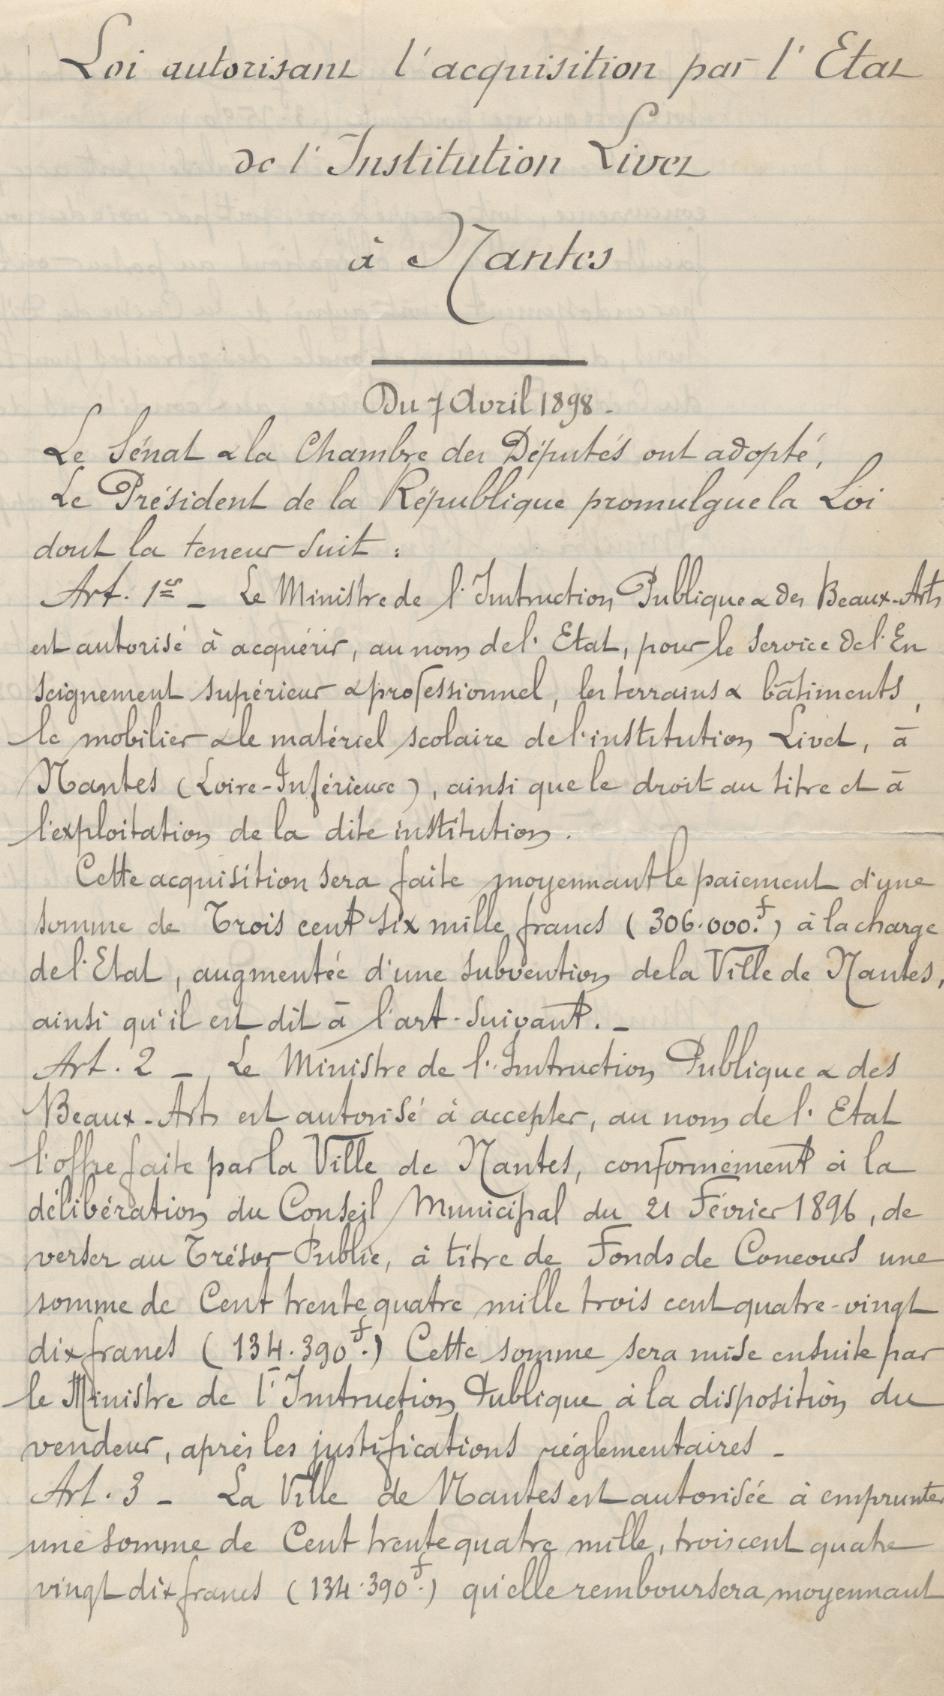 Loi autorisant l'acquisition par l'Etat
de l'Institution Livet
à Nantes
Du 7 Avril 1898.
Le Sénat & la Chambre des Députés ont adopté,
Le Président de la République promulgue la Loi
dont la teneur suit :
Art. 1er - Le Ministre de l'Instruction Publique & des Beaux-Arts
est autorisé à acquérir, au nom de l'Etat, pour le service de l'En
seignement supérieur & professionnel, les terrains & bâtiments,
le mobilier & le matériel scolaire de l'institution Livet, à
Nantes (Loire-Inférieure), ainsi que le droit au titre et à
l'exploitation de la dite institution.
Cette acquisition sera faite moyennant le paiement d'une
somme de Trois cent six mille francs (306.000f.) à la charge
de l'Etat, augmentée d'une subvention de la Ville de Nantes,
ainsi qu'il est dit à l'art. suivant. -
Art. 2 - Le Ministre de l'Instruction Publique & des
Beaux-Arts est autorisé à accepter, au nom de l'Etat
l'offre faite par la Ville de Nantes, conformément à la
délibération du Conseil Municipal du 21 Février 1896, de
verser au Trésor Public, à titre de Fonds de Concours une
somme de Cent trente quatre mille trois cent quatre-vingt
dix francs (134.390f.) Cette somme sera mise ensuite par
le Ministre de l'Instruction Publique à la disposition du
vendeur, après les justifications réglementaires -
Art. 3 - La Ville de Nantes est autorisée à emprunter
une somme de Cent trente quatre mille, trois cent quatre
vingt dix francs (134.390f.) qu'elle remboursera moyennant